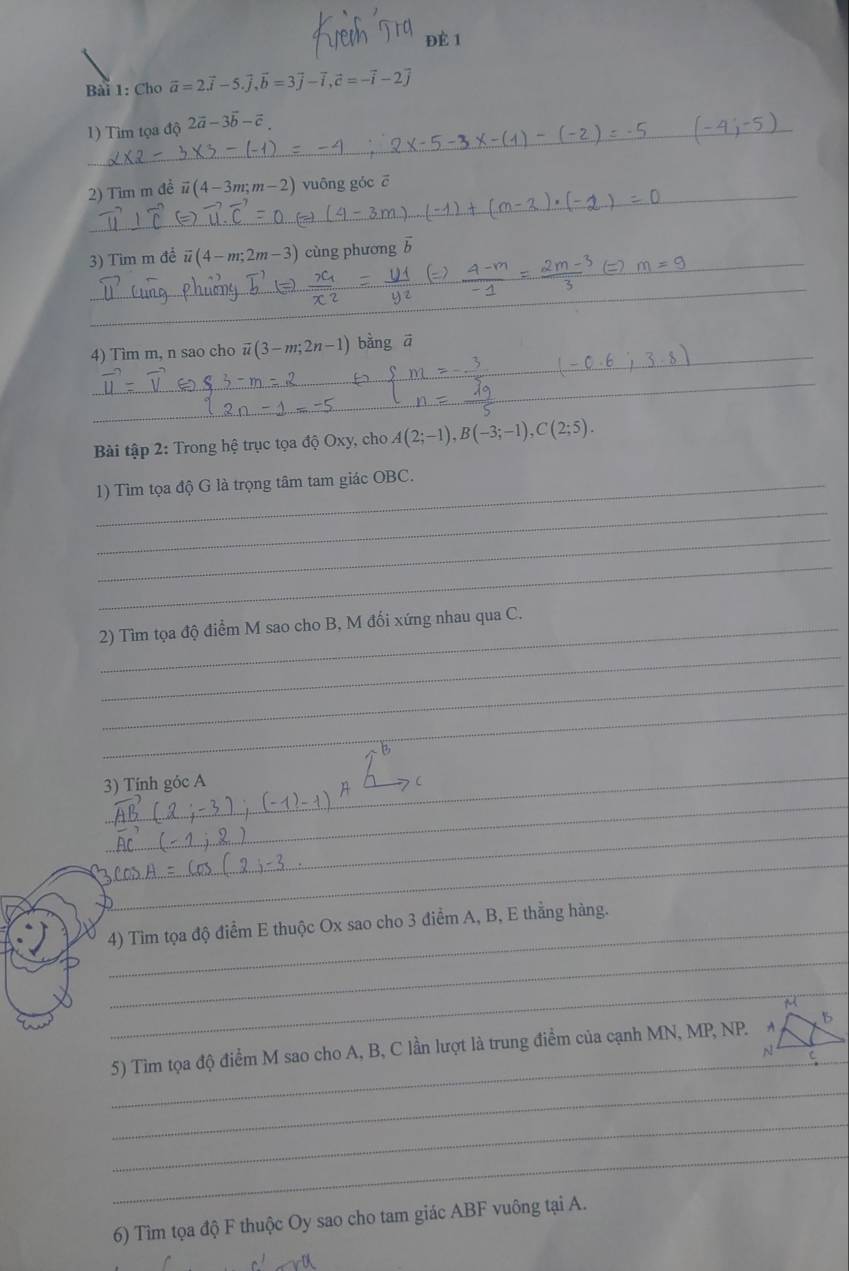 Kiểm Tra ĐỀ 1
Bài 1: Cho a⃗ = 2.i⃗ − 5.j⃗, b⃗ = 3j⃗ − i⃗, c⃗ = −i⃗ − 2j⃗
1) Tìm tọa độ 2a⃗ − 3b⃗ − c⃗.
2x2 - 3x3 - (-1) = -4 ; 2x-5-3x-(1) - (-2) = -5 (-4;-5)
2) Tìm m để u⃗(4−3m; m−2) vuông góc c⃗
u⃗ ⊥ c⃗ (=) u⃗.c⃗ = 0 (=) (4-3m).(-1)+(m-2).(-2) = 0
3) Tìm m để u⃗(4−m; 2m−3) cùng phương b⃗
u⃗ cùng phương b⃗ (=) x1/x2 = y1/y2 (=) 4-m/-1 = 2m-3/3 (=) m = 9
4) Tìm m, n sao cho u⃗(3−m; 2n−1) bằng a⃗
u⃗ = v⃗ ⇔ { 3-m = 2 ⇔ { m = -3/5 (-0.6; 3.8)
2n-1 = -5 n = 19/5
Bài tập 2: Trong hệ trục tọa độ Oxy, cho A(2;−1), B(−3;−1), C(2;5).
1) Tìm tọa độ G là trọng tâm tam giác OBC.
2) Tìm tọa độ điểm M sao cho B, M đối xứng nhau qua C.
B
3) Tính góc A
A C
AB⃗ (2;-3); (-1)-1)
AC⃗ (-1;2)
cosA = cos(2;-3.
4) Tìm tọa độ điểm E thuộc Ox sao cho 3 điểm A, B, E thẳng hàng.
M
5) Tìm tọa độ điểm M sao cho A, B, C lần lượt là trung điểm của cạnh MN, MP, NP.
A B
N C
6) Tìm tọa độ F thuộc Oy sao cho tam giác ABF vuông tại A.